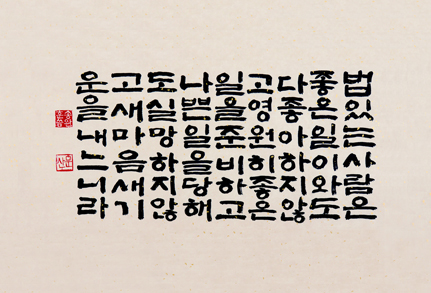 법있는사람은
좋은일이와도
다좋아하지않
고영원히좋은
일을준비하고
나쁜일을당해
도실망하지않
고새마음새기
운을내느니라